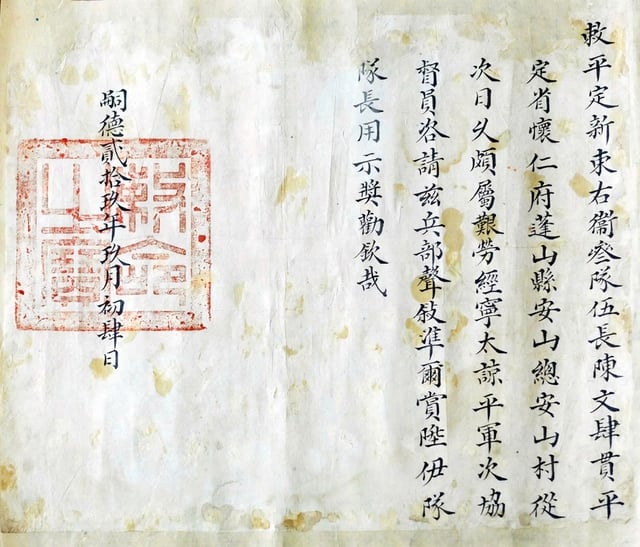 敕平定新東右衞叅隊伍長陳文肆貫平
定省懷仁府蓬山縣安山總安山村從
次日久頗屬艱劳經寧太諒平軍次協
督員咨請兹兵部聲敍準爾賞陞伊隊
隊長用示獎勸欽哉
嗣德貳拾玖年玖月初肆日
敕命之寶